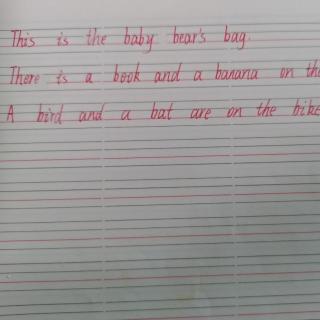 This is the baby bear's bag.
There is a book and a banana on the
A bird and a bat are on the bike